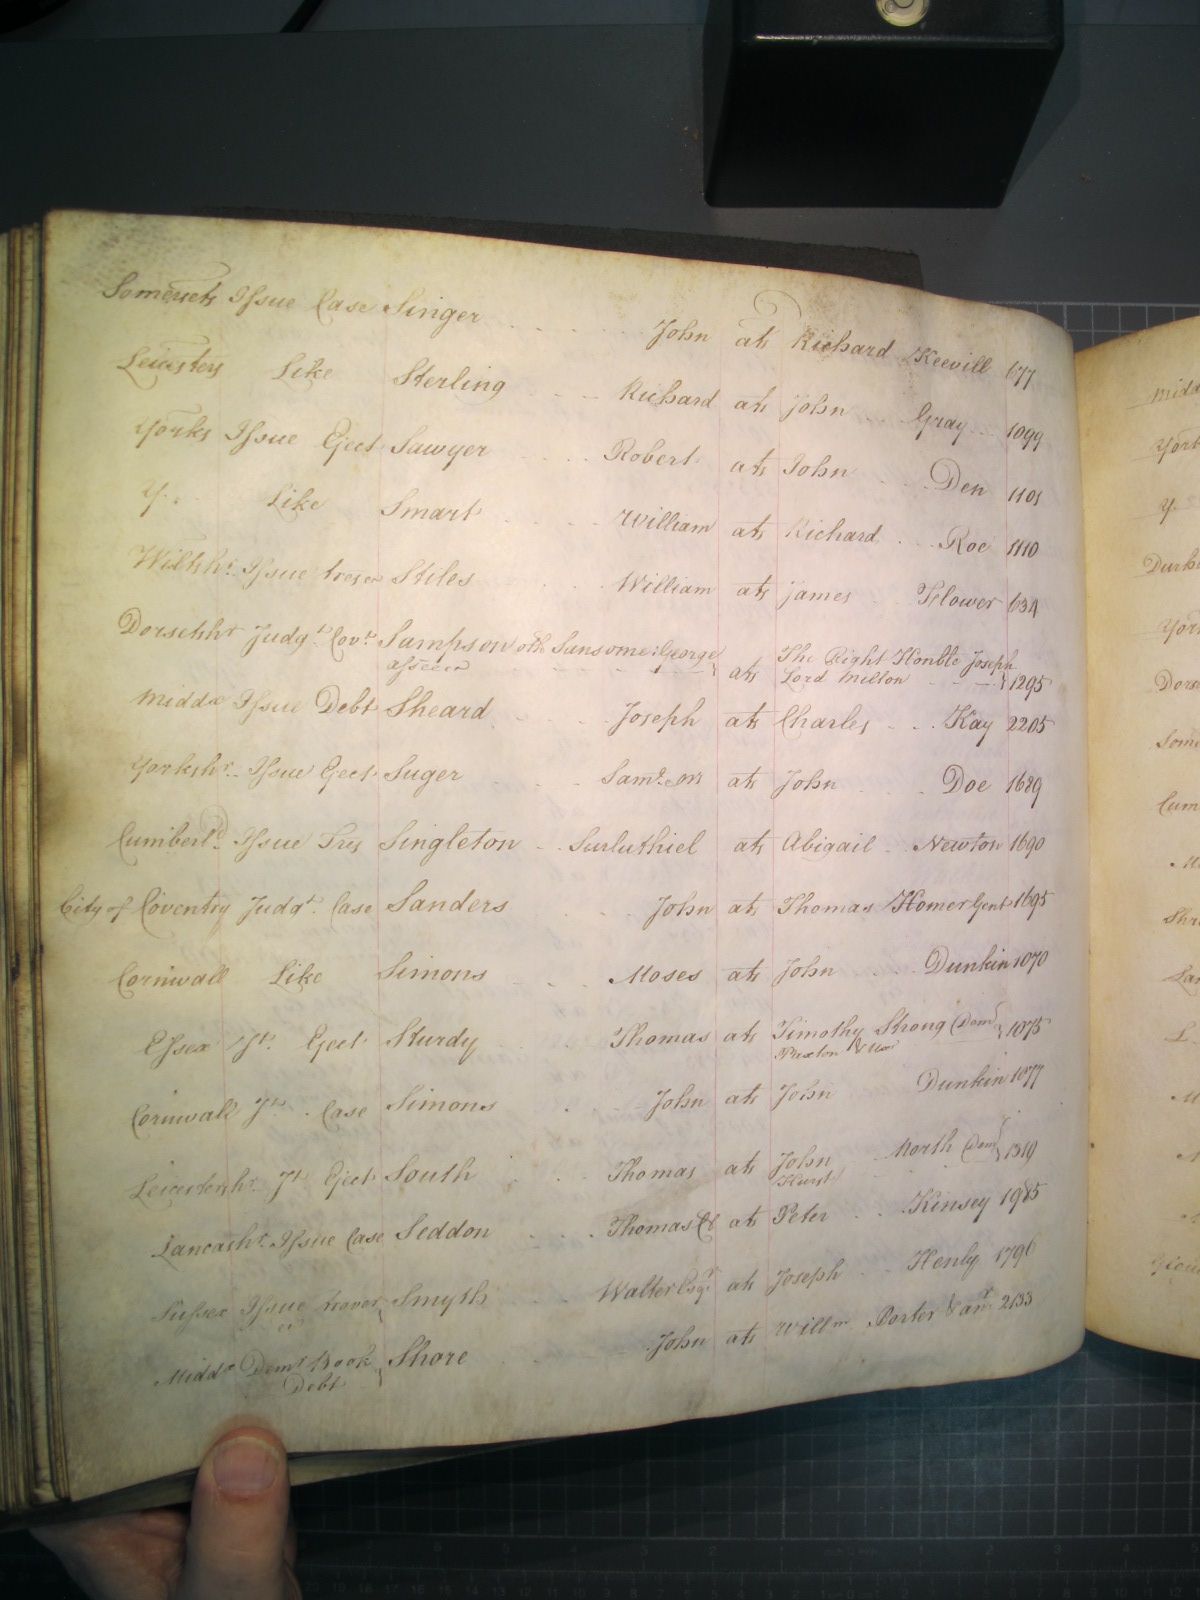 Somersets Issue Case Singer John ats Richard Keevill 677
Leicesters Like Sterling Richard ats John Gray 1099
Yorks Issue Eject Sawyer Robert ats John Den 1101
Y. Like Smart William ats Richard Roe 1110
Wiltshr. Issue Stiles William ats James Flower 634
Dorsetshr Judgt. Covt Sampson oths Sansome George
ats The Right Honble Joseph
Lord Milton 1295
Middx Issue Debt Sheard Joseph ats Charles Kay 2205
Yorkshr. Issue Eject Suger Saml. ats John Doe 1689
Cumberld. Issue Tres Singleton Surluthiel ats Abigail Newton 1690
City of Coventry Judgt. Case Sanders John ats Thomas Homer Gent 1695
Cornwall Like Simons Moses ats John Dunkin 1070
Essex Jt. Eject Sturdy Thomas ats Timothy Strong (Demd 1075
Paxton &
Cornwall Jt. Case Simons John ats John Dunkin 1077
Leicestershr. Jt Eject South Thomas ats John North (Demd 1519
Hurst
Lancashr. Issue Case Seddon Thomas ats Peter Kinsey 1985
Sussex Issue trover Smyth Walter Esqr ats Joseph Henly 1796
Middx Demr Book Shore John ats Willm Porter & anr. 2133
Debt